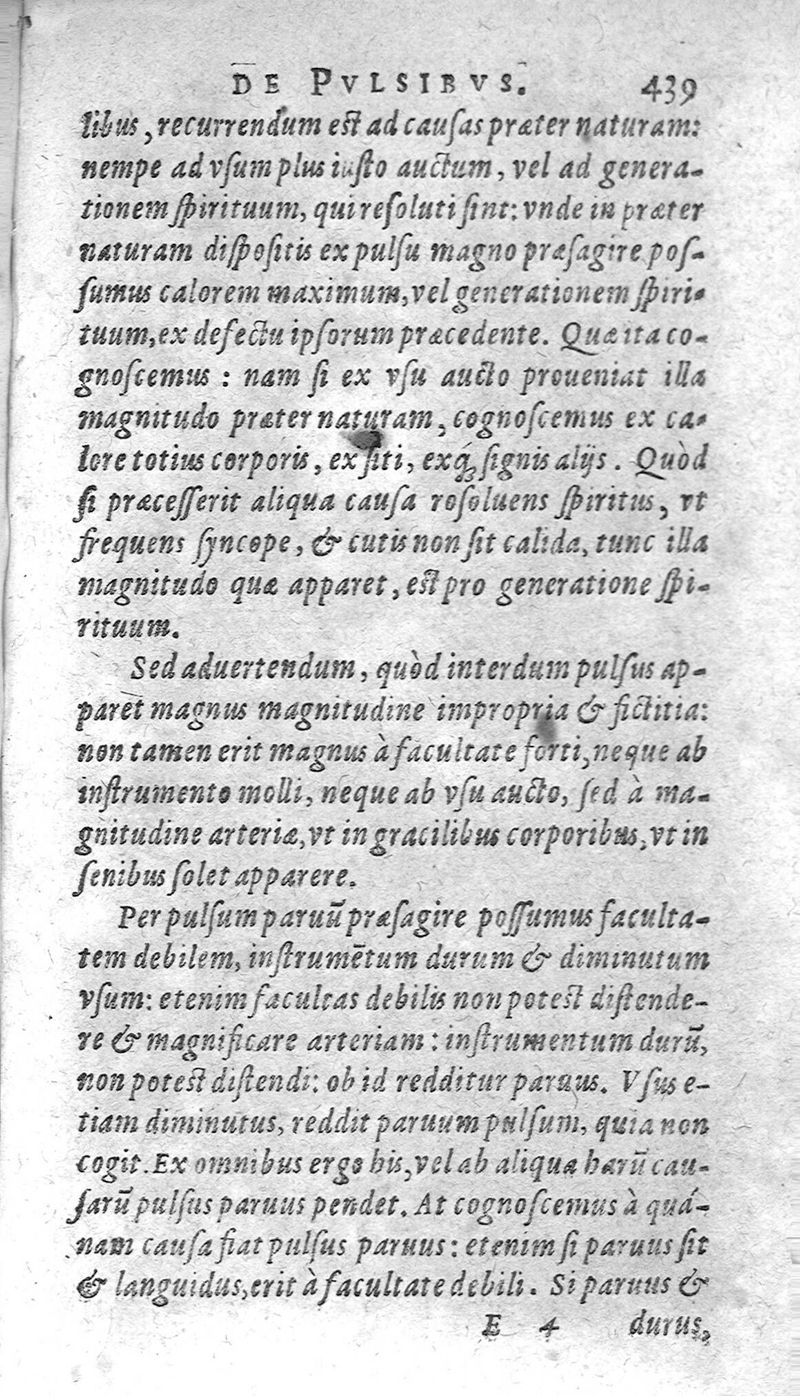 DE PVLSIBVS. 439
libus, recurrendum est ad causas præter naturam:
nempe ad vsum plus iusto auctum, vel ad genera-
tionem spirituum, qui resoluti sint: vnde in præter
naturam dispositis ex pulsu magno præsagire pos-
sumus calorem maximum, vel generationem spiri-
tuum, ex defectu ipsorum præcedente. Quæ ita co-
gnoscemus : nam si ex vsu aucto proueniat illa
magnitudo præter naturam, cognoscemus ex ca-
lore totius corporis, ex siti, exq́; signis alijs. Quòd
si præcesserit aliqua causa rosoluens spiritus, vt
frequens syncope, & cutis non sit calida, tunc illa
magnitudo quæ apparet, est pro generatione spi-
rituum.
Sed aduertendum, quòd interdum pulsus ap-
paret magnus magnitudine impropria & fictitia:
non tamen erit magnus à facultate forti, neque ab
instrumento molli, neque ab vsu aucto, sed à ma-
gnitudine arteriæ, vt in gracilibus corporibus, vt in
senibus solet apparere.
Per pulsum paruū præsagire possumus faculta-
tem debilem, instrumētum durum & diminutum
vsum: etenim facultas debilis non potest distende-
re & magnificare arteriam: instrumentum durū,
non potest distendi: ob id redditur paruus. Vsus e-
tiam diminutus, reddit paruum pulsum, quia non
cogit. Ex omnibus ergo his, vel ab aliqua harū cau-
sarū pulsus paruus pendet. At cognoscemus à quá-
nam causa fiat pulsus paruus: etenim si paruus sit
& languidus, erit à facultate debili. Si paruus &
E 4 durus,